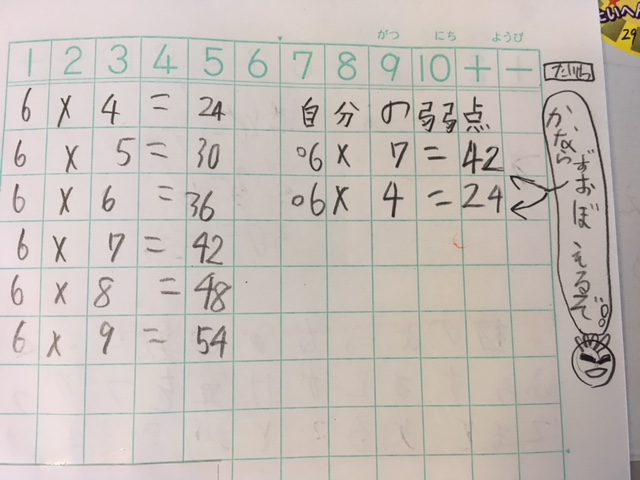 がつ にち ようび
1 2 3 4 5 6 7 8 9 10 + −
6 × 4 = 24
6 × 5 = 30
6 × 6 = 36
6 × 7 = 42
6 × 8 = 48
6 × 9 = 54
自分の弱弱点
○6 × 7 = 42
○6 × 4 = 24
かならず
おぼえるぞ!!
たいへん
29